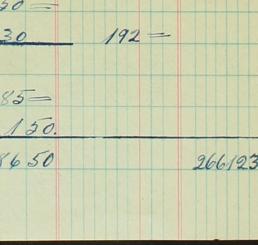 50=
30 192=
85=
150.
8650 266123